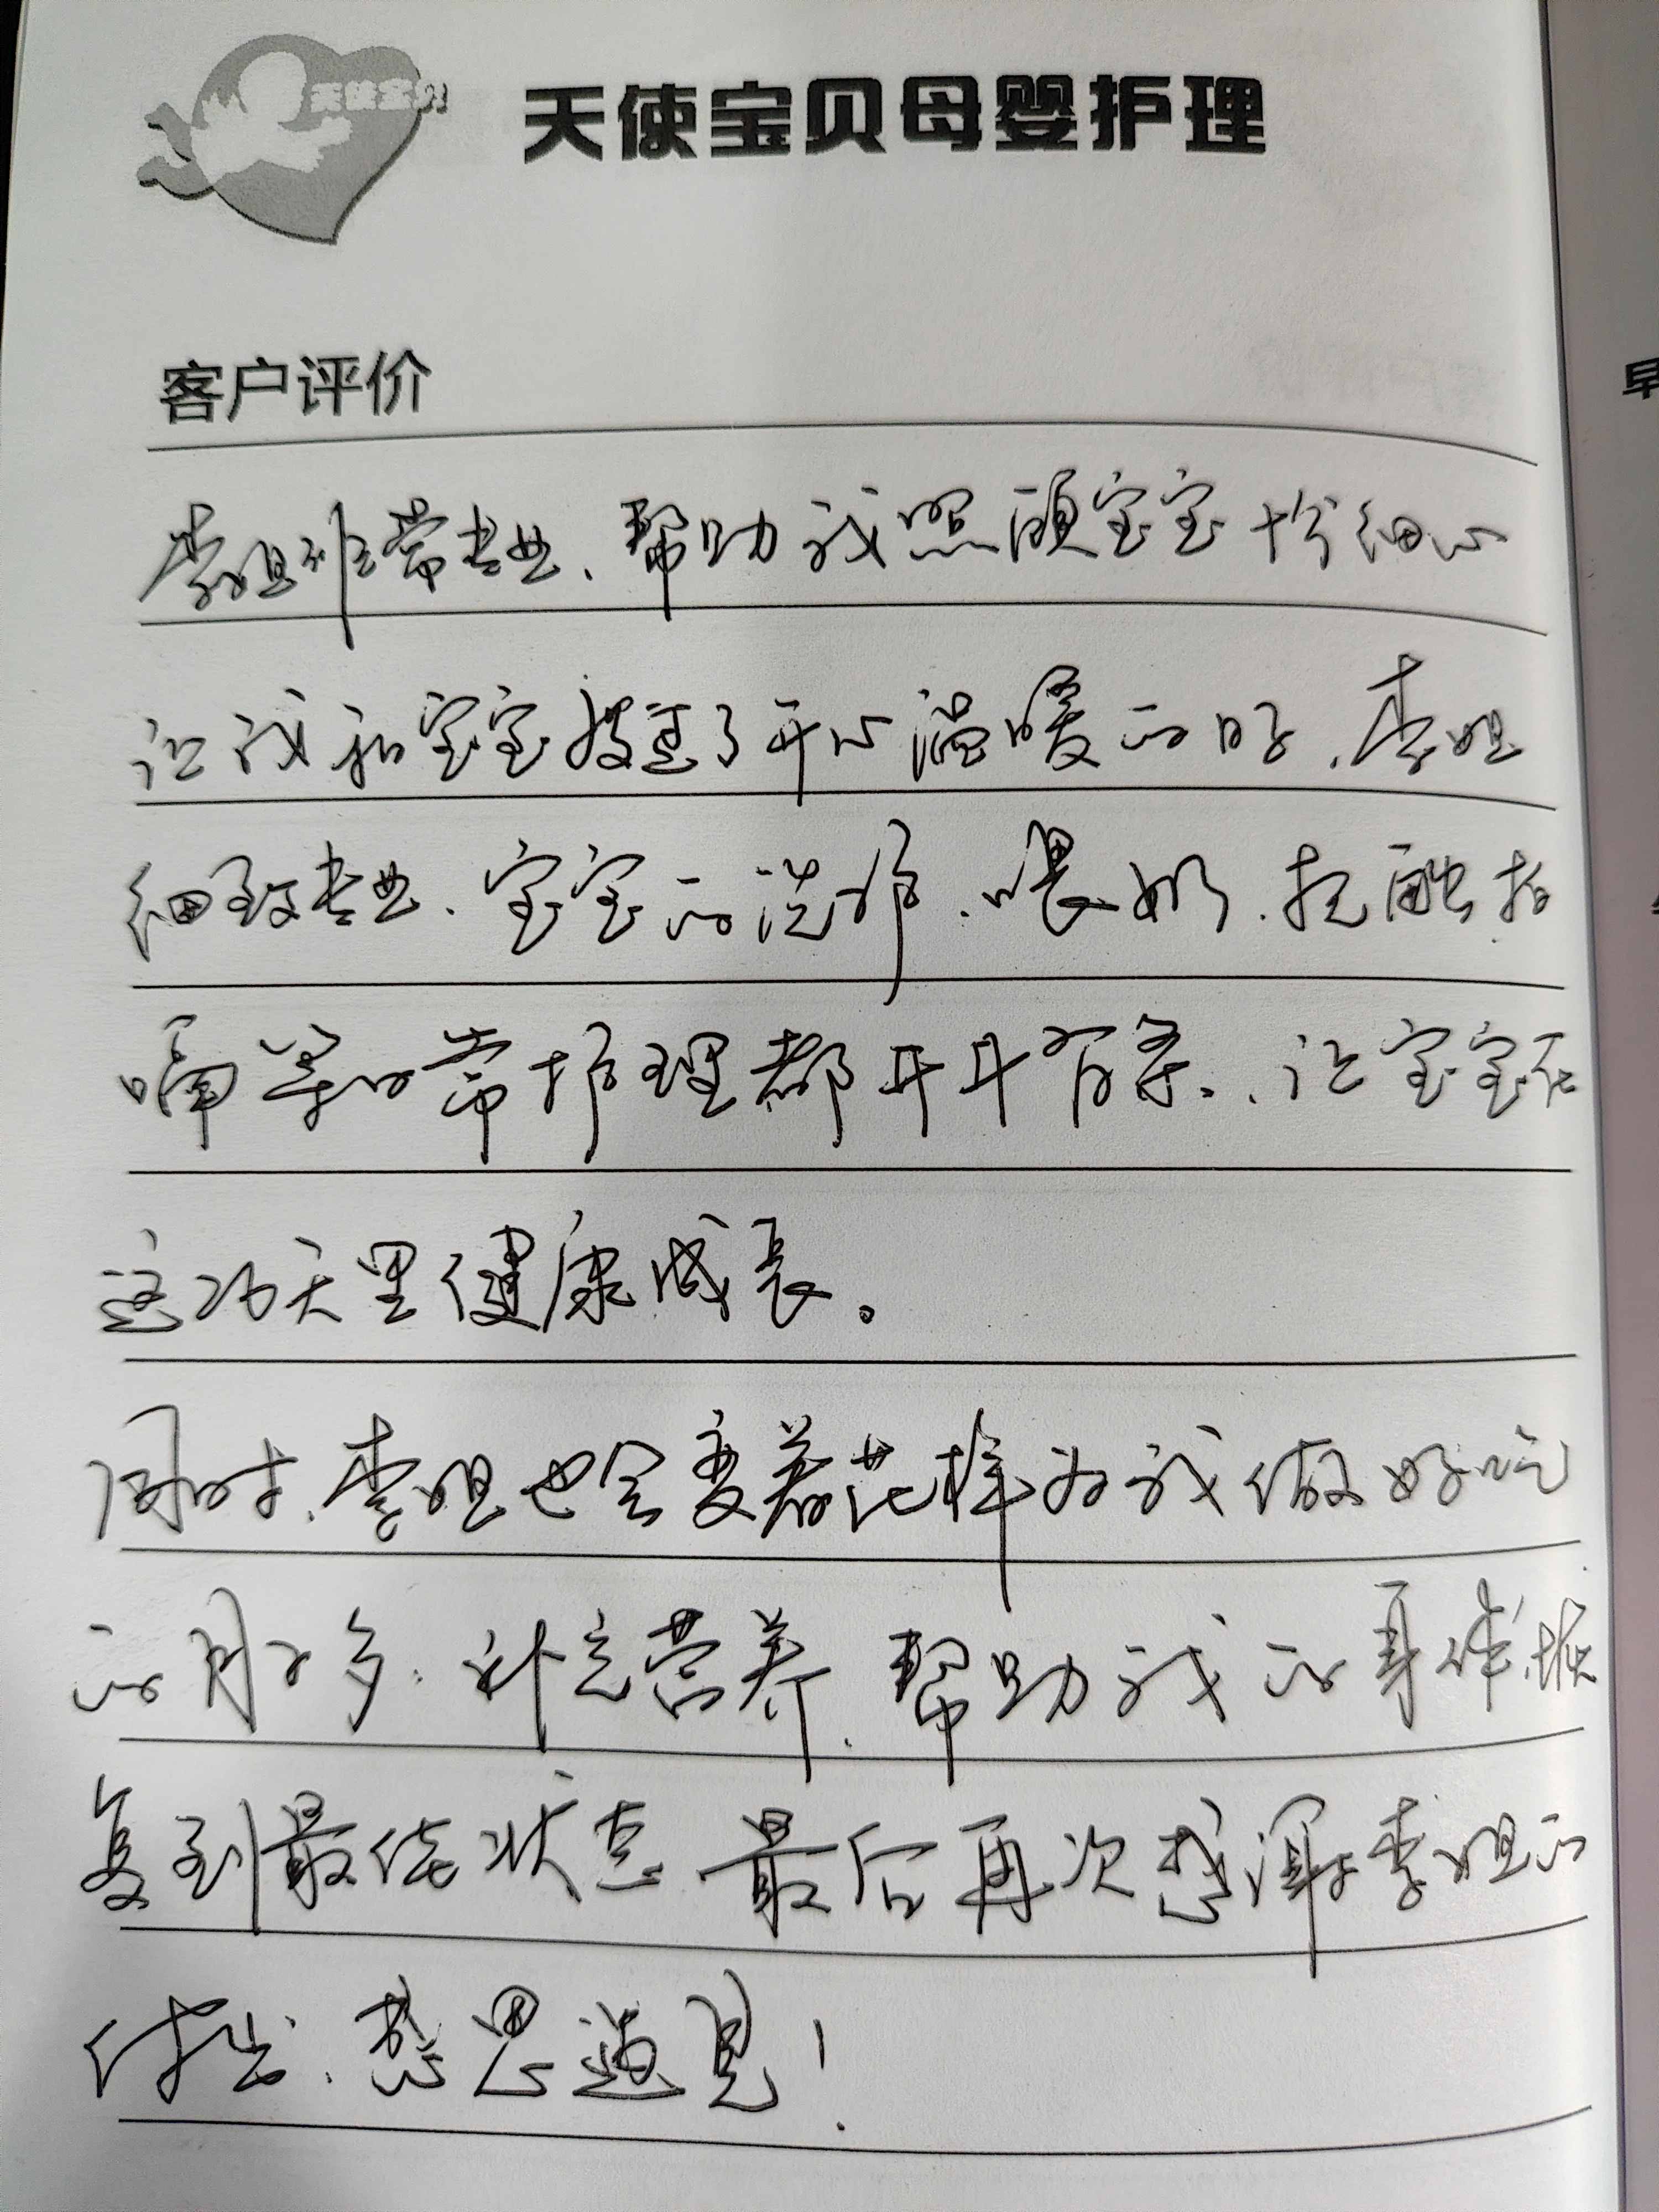 天使宝贝
天使宝贝母婴护理
客户评价
李姐非常专业、帮助我照顾宝宝十分细心
让我和宝宝度过了开心温暖的月子.李姐
细致专业、宝宝的洗护、喂奶、抚触拍
嗝等日常护理都井井有条、让宝宝在
这26天里健康成长。
同时、李姐也会变着花样为我做好吃
的月子 补充营养、帮助我的身体恢
复到最佳状态 最后再次感谢李姐的
付出、感恩遇见!
早